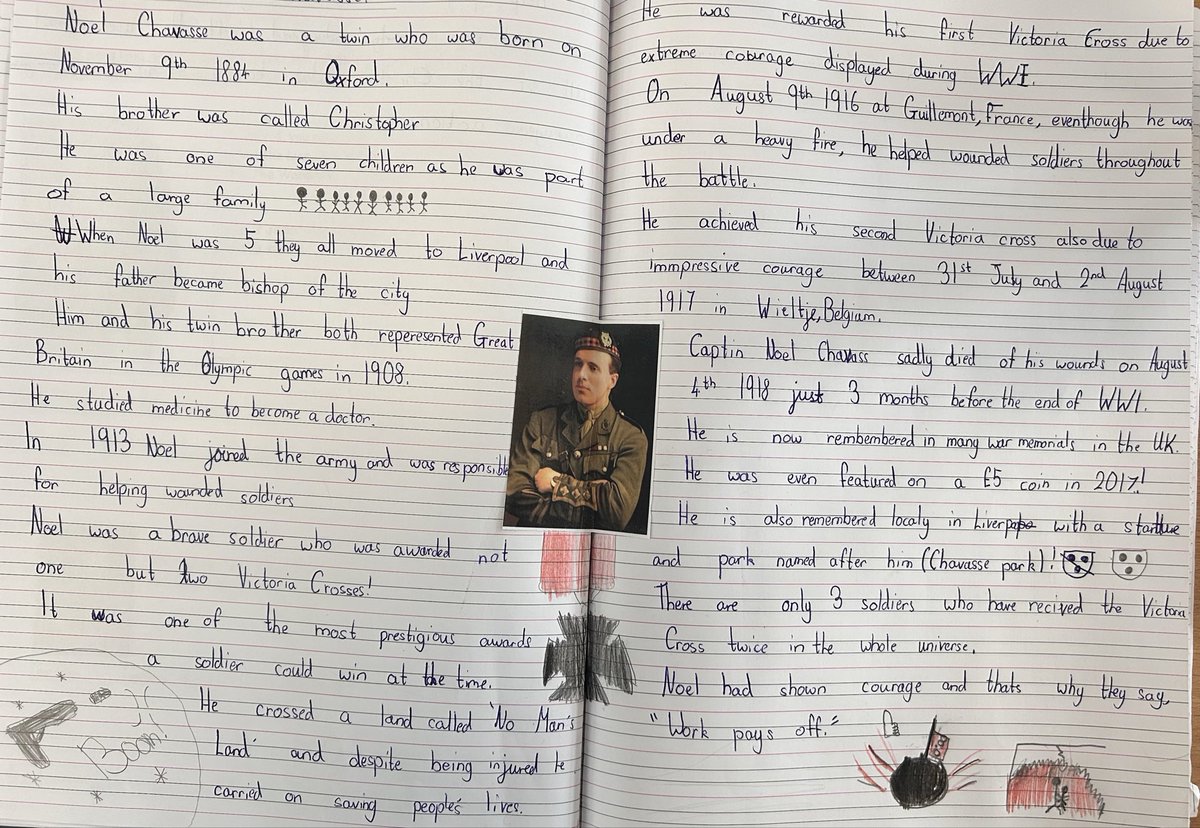 Noel Chavasse was a twin who was born on
November 9th 1884 in Oxford.
His brother was called Christopher
He was one of seven children as he was part
of a large family
When Noel was 5 they all moved to Liverpool and
his father became bishop of the city
Him and his twin brother both reperesented Great
Britain in the Olympic games in 1908.
He studied medicine to become a doctor.
In 1913 Noel joined the army and was responsible
for helping wounded soldiers
Noel was a brave soldier who was awarded not
one but two Victoria Crosses!
It was one of the most prestigious awards
a soldier could win at the time.
He crossed a land called 'No Man's
Land' and despite being injured he
carried on saving people's lives.
Boom!
He was rewarded his first Victoria Cross due to
extreme courage displayed during WWI.
On August 9th 1916 at Guillemont, France, eventhough he was
under a heavy fire, he helped wounded soldiers throughout
the battle.
He achieved his second Victoria cross also due to
immpressive courage between 31st July and 2nd August
1917 in Wieltje, Belgium.
Captin Noel Chavass sadly died of his wounds on August
4th 1918 just 3 months before the end of WWI.
He is now rembembered in many war memorials in the UK.
He was even featured on a £5 coin in 2017!
He is also remembered localy in with a
and park named after him (Chavasse park)!
There are only 3 soldiers who have recived the Victoria
Cross twice in the whole universe.
Noel had shown courage and thats why they say,
"Work pays off."